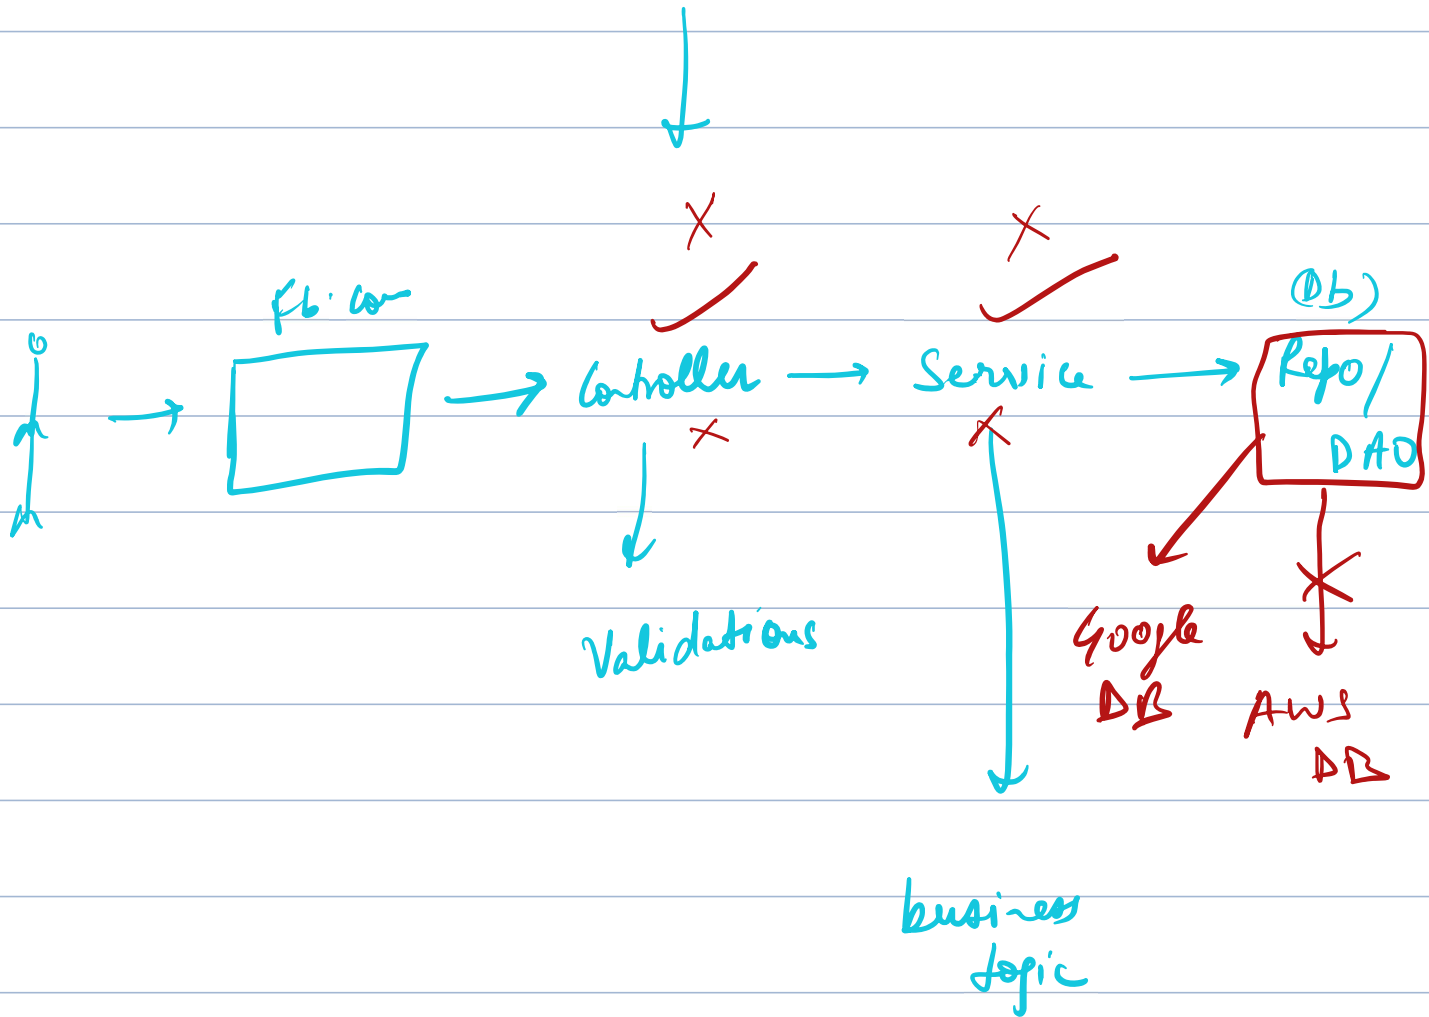 fb.com
(Db)
Controller
Service
Repo/
DAO
Validations
Google
DB
AWS
DB
business
logic